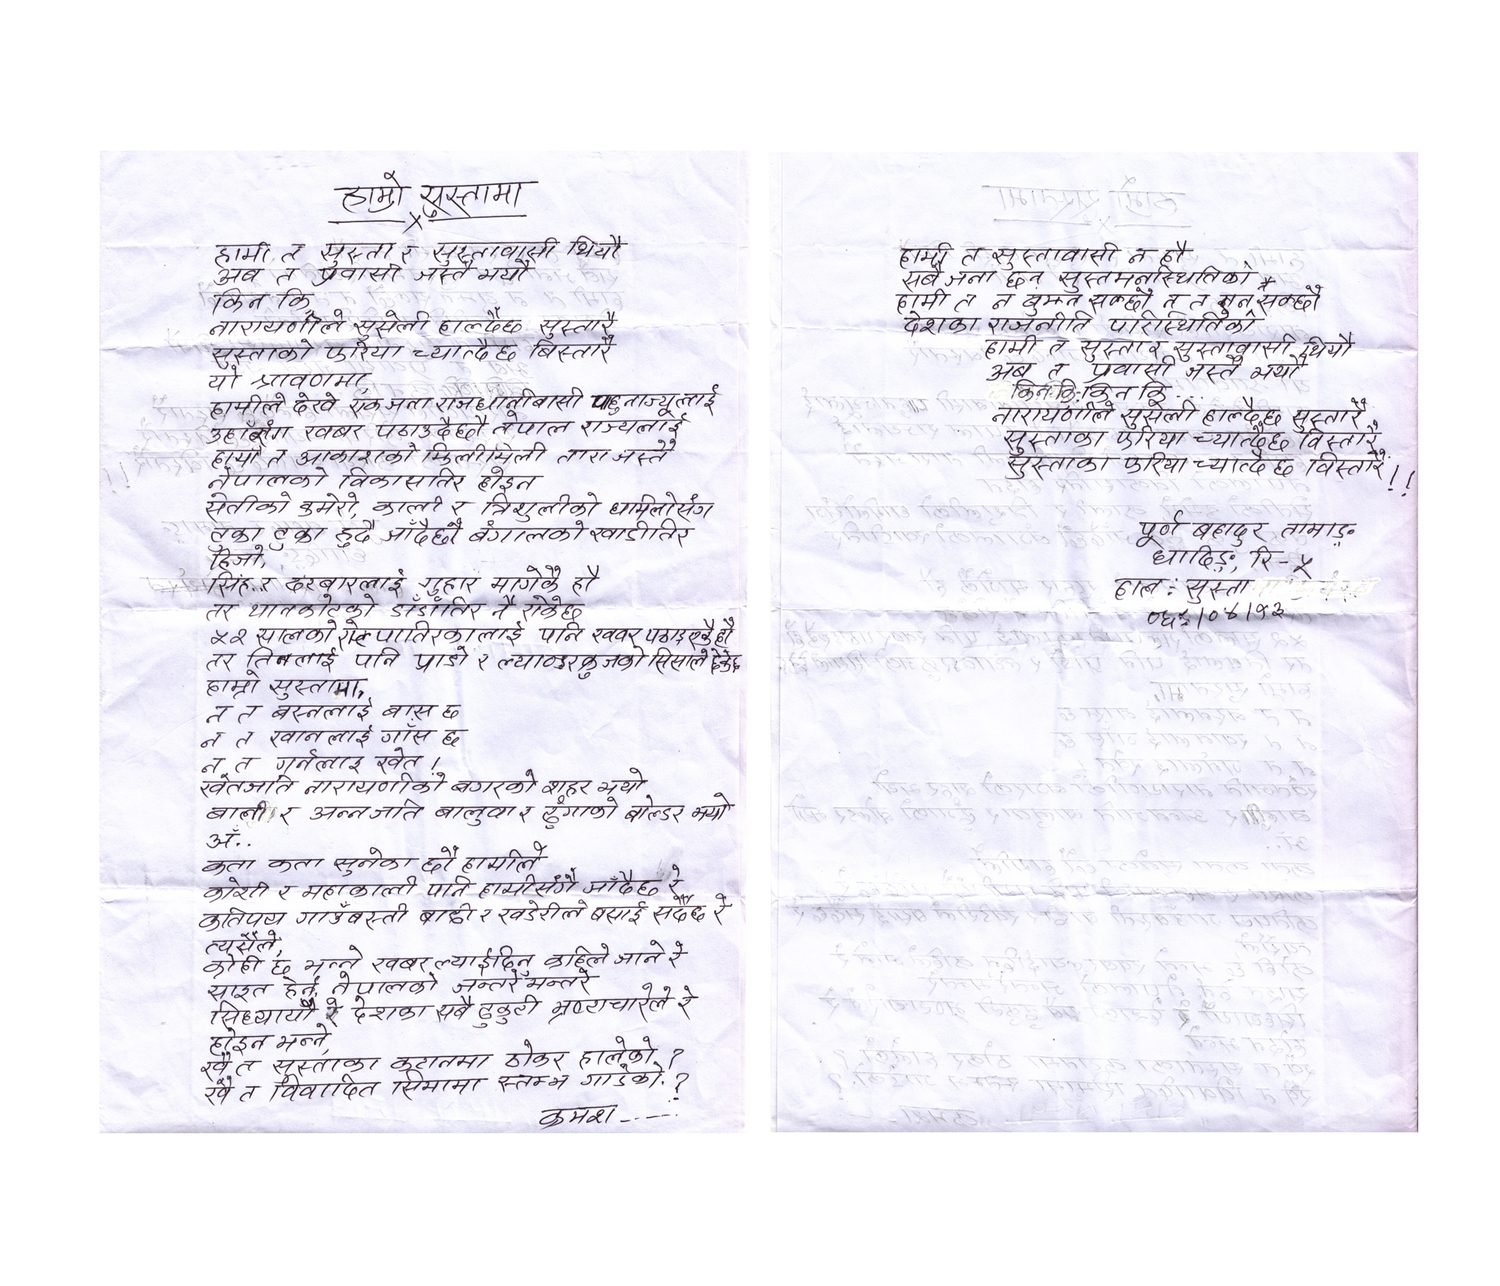 हाम्रो सुस्तामा
हामी त सुस्ता र सुस्तावासी थियौ
अब त प्रवासी जस्तै भयौ
किन कि,
नारायणीले सुसेली हाल्दैछ सुस्तारै
सुस्ताको फरिया च्यात्दै छ बिस्तारै
यो श्रावणमा,
हामीले देखे एकजना राजधानीबासी पाहुनाज्यूलाई
उहाँसंग खबर पठाउदैछौ नेपाल राज्यलाई
हामी त आकाशको झिलीमिली तारा जस्तै
नेपालको विकासतिर होइन
सेतीको कमेरो, काली र त्रिशुलीको धामिलोसंग
टुक्रा टुक्रा हुदै जाँदैछौ बंगालको खाडीतिर
हिजो,
सिंह.. र दरबारलाई गुहार मागेकै हौ
तर थानकोटको डाँडाँतिर नै रोकेछ
५२ सालको पातिरकालाई पनि खबर पठाएकै हौ
तर तिनलाई पनि प्राडो र ल्याण्डरक्रुजको सिसाले छेकेछ
हाम्रो सुस्तामा,
न त बस्नलाई बास छ
न त खानलाई गाँस छ
न त गर्नलाइ खेत !
खेतजति नारायणीको बगरको शहर भयो
बाली र अन्नजति बालुवा र ढुंगाको बोल्डर भयो
अँ..
कता कता सुनेका छौं हामीले
कोशी र महाकाली पनि हामीसँगै जाँदैछ रे
कतिपय गाउँबस्ती बाढी र खडेरीले बसाई सर्दैछ रे
त्यसैले,
कोही छ भन्ने खबर ल्याईदिनु कहिले जाने रे
साइत हेर्न नेपालको जन्तरे मन्तरे
सिध्यायौ रे देशका सबै ढुकुटी भ्रष्टाचारेले रे
होइन भन्ने,
खै त सुस्ताका कटानमा ठोकर हालेको ?
खै त विवादित सिमामा स्तम्भ गाडेको ?
क्रमश -----
हामी त सुस्तावासी न हौ
सबै जना छन सुस्तमनस्थितिको
हामी त न बुझ्न सक्छौ न त बुन सक्छौ
देशका राजनीति परिस्थितिको
हामी त सुस्ता र सुस्तावासी थियौ
अब त प्रवासी जस्तै भयौ
किन कि, किन कि...
नारायणीले सुसेली हाल्दैछ सुस्तारै
सुस्ताका फरिया च्यात्दैछ बिस्तारै
सुस्ताका फरिया च्यात्दै छ विस्तारै !!
पूर्ण बहादुर तामाङ्ग
धादिङ्ग, रि-५
हाल : सुस्ता